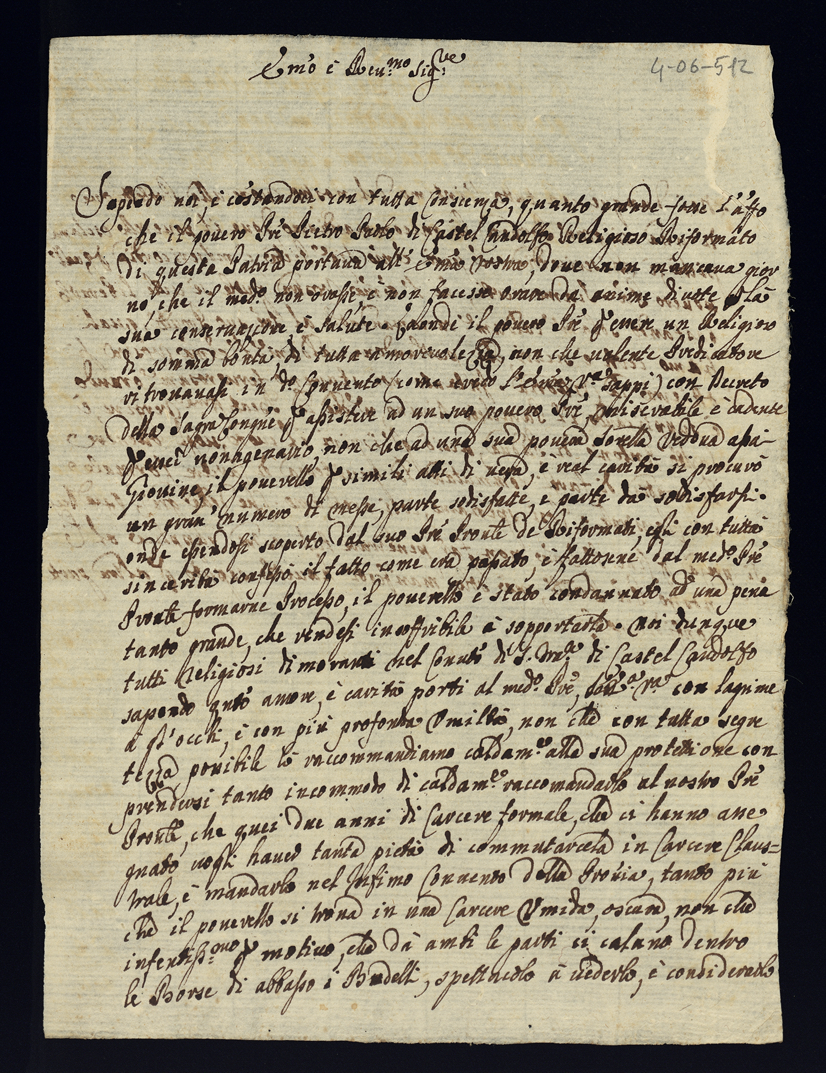 Emo è Reu.mo Sig:re
4-06-512
Sapendo noi, è costandoci con tutta Conscienza, quanto grande fosse l'affo
che il povero Pre Pietro Paolo di Castel Gandolfo Religioso Riformato
di questa Patria portava all' Emza Vostra, dove non mancava gior
no, che il med.o non orasse, è non facesse orare da anime divote p la
sua conservazione è salute. il povero Pre p essere un Religioso
di somma bontà, di tutta amorevolezza, non che valente Predicatore
ritrovavasi in d.o Convento (come credo l'Emza V.ra sappi) con Decreto
della Sagra Congne p assistere ad un suo povero Pre, miserabile è cadente
p esser nonagenario, non che ad una sua povera Sorella Vedova assai
Giovine, il poverello p simili atti di vera, è real carità si procurò
un gran numero di messe, parte sodisfatte, e parte da sodisfarsi.
onde essendosi scoperto dal suo Pre Pronle de Riformati, egli con tutta
sincerità confessò il fatto come era passato, è fattone dal med.o Pre
Pronle formarne Processo, il poverello è stato condannato ad una pena
tanto grande, che rendesi insoffribile à sopportarla. Noi dunque
tutti Religiosi dimoranti nel Convto di S. di Castel Gandolfo
sapendo qnto amore, è carità porti al med.o Pre, V.ra con lagrime
a gl'occhi, è con più profonda Umiltà, non che con tutta segre
tezza possibile lo raccommandiamo caldam.e alla sua protettione con
prendersi tanto incommodo di caldam.e raccomandarlo al nostro Pre
Pronle, che quei due anni di Carcere formale, che ci hanno asse
gnato vogli haver tanta pietà di commutarcela in Carcere Claus=
trale, è mandarlo nel Infimo Convento della Provia, tanto più
che il poverello si trova in una Carcere Umida, oscura, non che
infertiss.mo p motivo, che dà ambe le parti ci calano dentro
le Borse di abbasso i Budelli, spettacolo à vederlo, è considerarlo